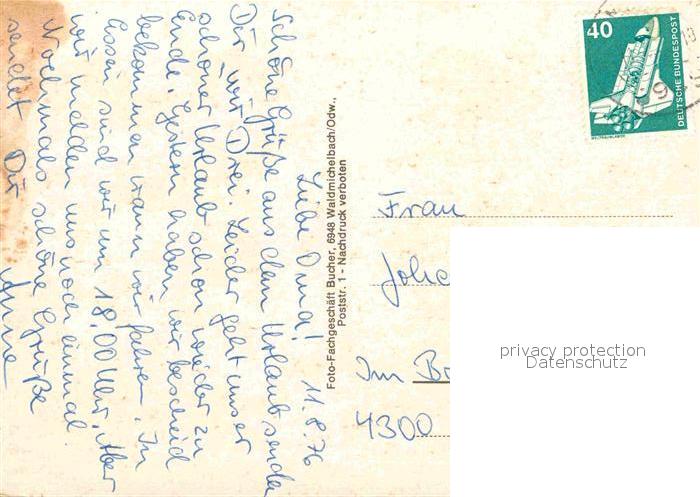 11.8.76
Liebe Oma!
Schöne Grüße aus dem Urlaub senden
Dir wir Drei. Leider geht unser
schöner Urlaub schon wieder zu
Ende. Gestern haben wir bescheid
bekommen wann wir fahren. In
Essen sind wir um 18.00 Uhr. Aber
wir melden uns noch einmal.
Nochmals schöne Grüße
sendet Dir
Anne
Foto-Fachgeschäft Bucher, 6948 Waldmichelbach/Odw.,
Poststr. 1 - Nachdruck verboten
40
DEUTSCHE BUNDESPOST
Frau
Im
4300
privacy protection
Datenschutz